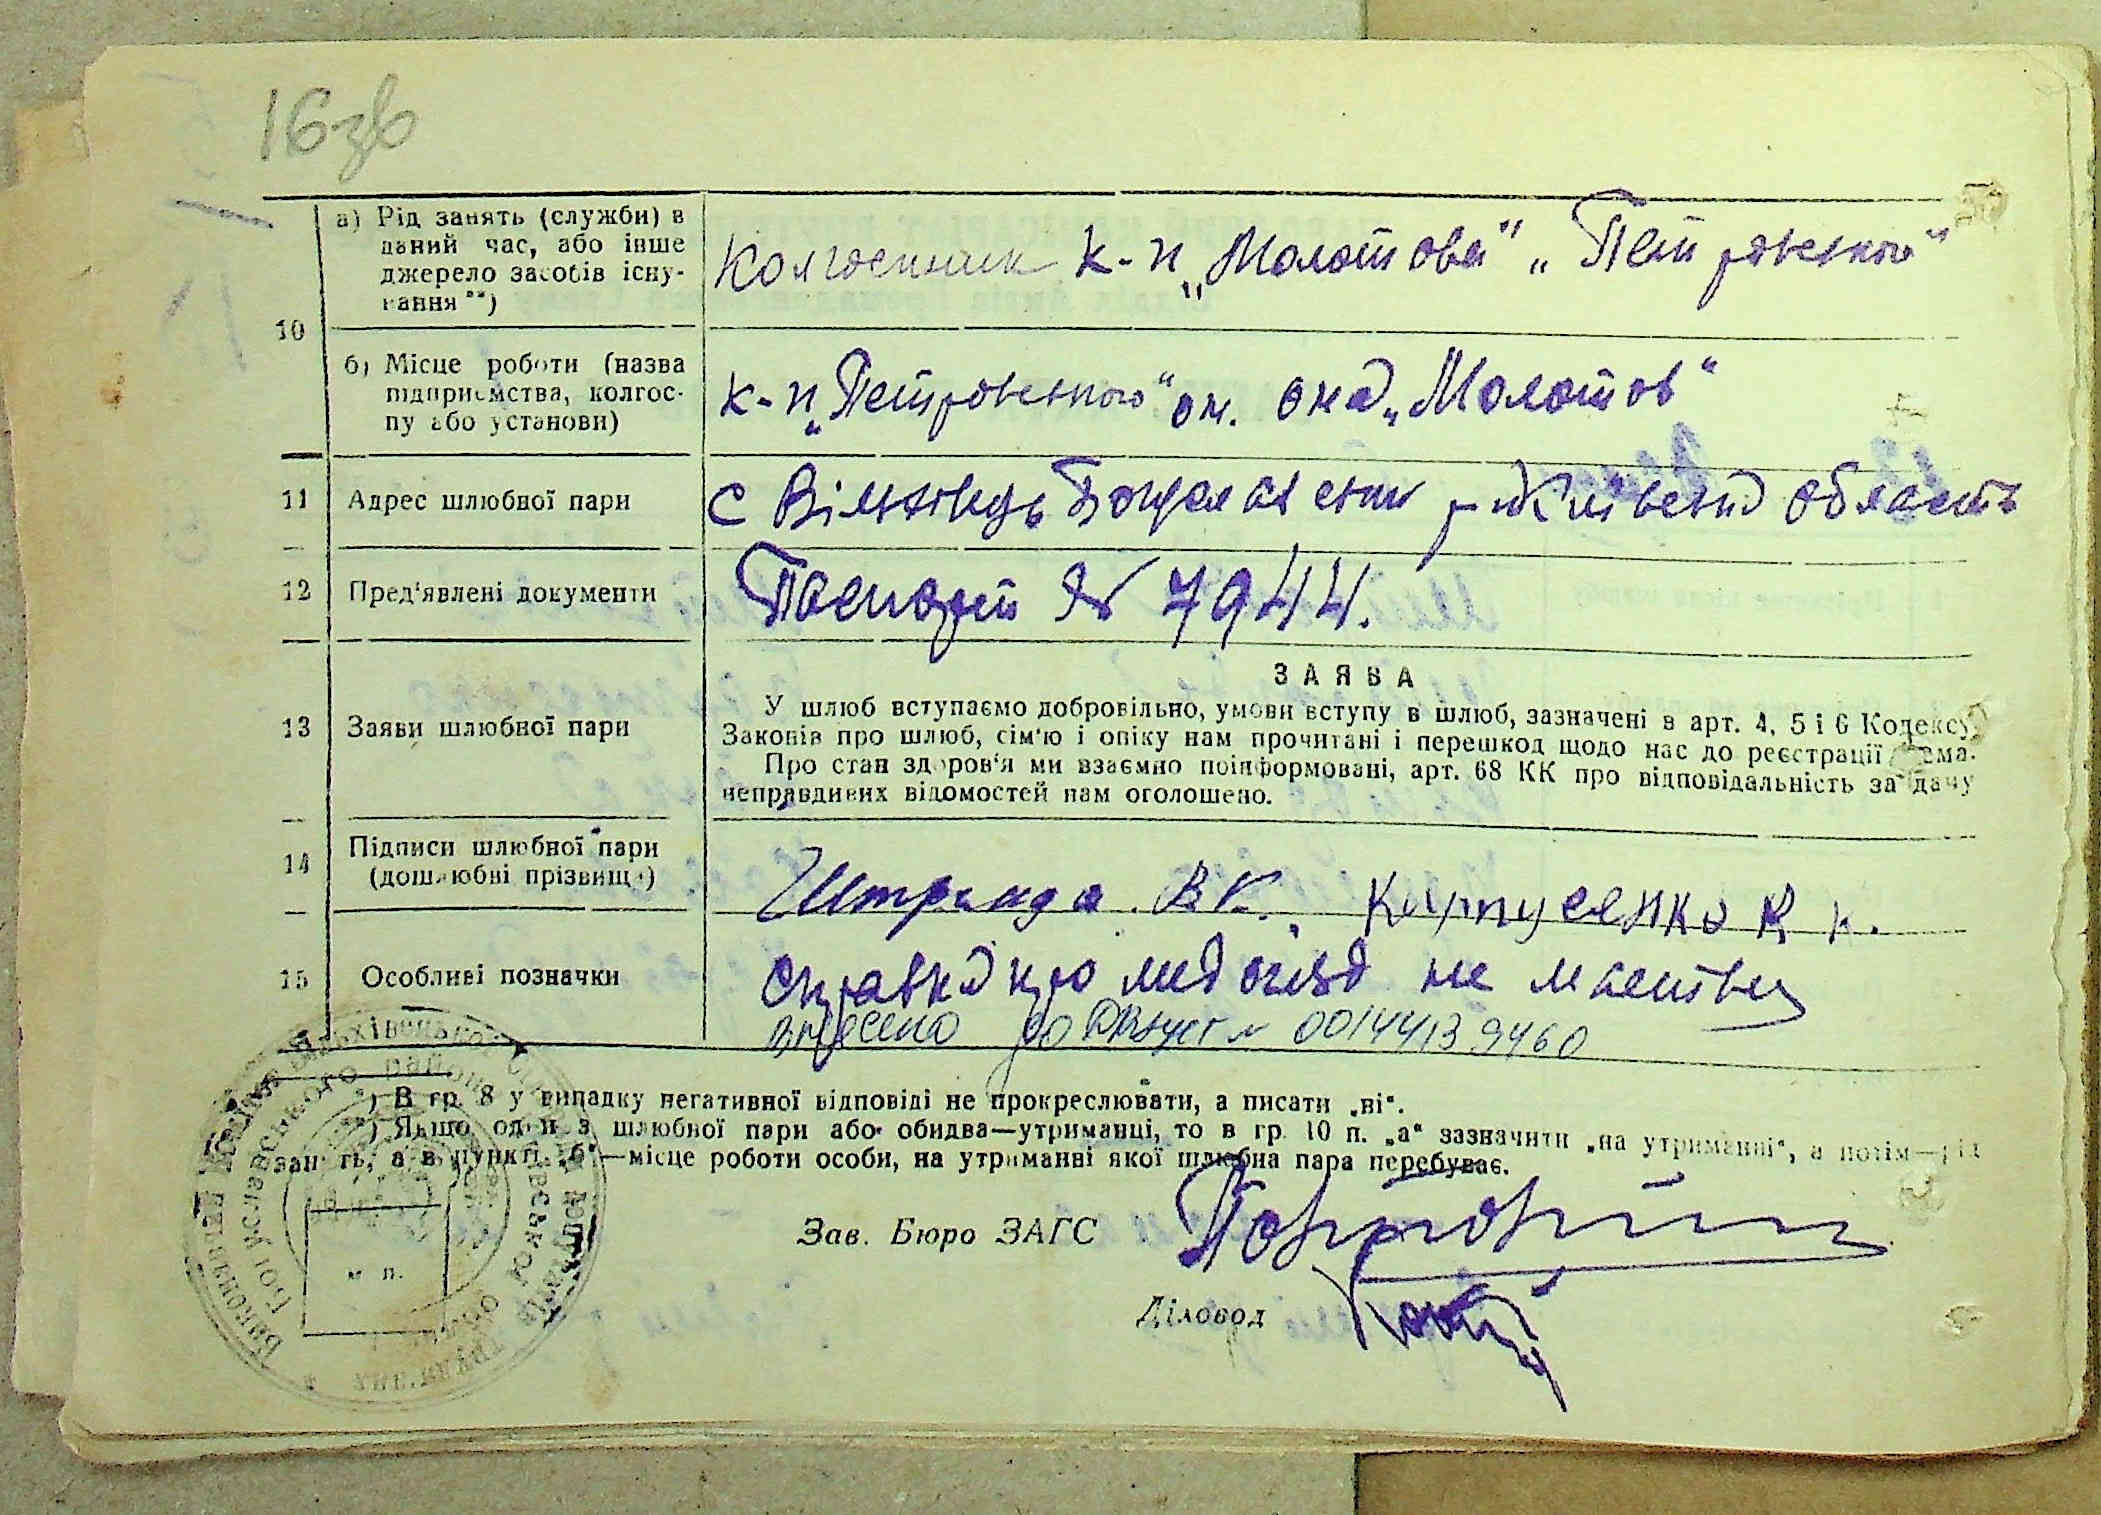 16зв
10
а) Рід занять (служби) в
даний час, або інше
джерело засобів існу-
вання**)
Колгоспник к-п „Молотова“ „Петровського“
б) Місце роботи (назва
підприємства, колгос-
пу або установи)
к-п „Петровського“ він. вона „Молотов“
11
Адрес шлюбної пари
с Вільхівець Богуславський р. Київська область
12
Пред'явлені документи
Паспорт № 7944.
13
Заяви шлюбної пари
ЗАЯВА
У шлюб вступаємо добровільно, умови вступу в шлюб, зазначені в арт. 4, 5 і 6 Кодексу
Законів про шлюб, сім'ю і опіку нам прочитані і перешкод щодо нас до реєстрації нема.
Про стан здоров'я ми взаємно поінформовані, арт. 68 КК про відповідальність за дачу
неправдивих відомостей нам оголошено.
14
Підписи шлюбної пари
(дошлюбні прізвища)
Штринда В К. Карпусенко
15
Особливі позначки
справка про медогляд не мается
внесено до ДРАЦСГ № 00144139460
*) В гр. 8 у випадку негативної відповіді не прокреслювати, а писати „ні“.
**) Якщо один з шлюбної пари або обидва—утриманці, то в гр. 10 п. „а“ зазначити „на утриманні“, а потім—рід
занять, а в пункті „б“—місце роботи особи, на утриманні якої шлюбна пара перебуває.
Зав. Бюро ЗАГС
м п.
Діловод